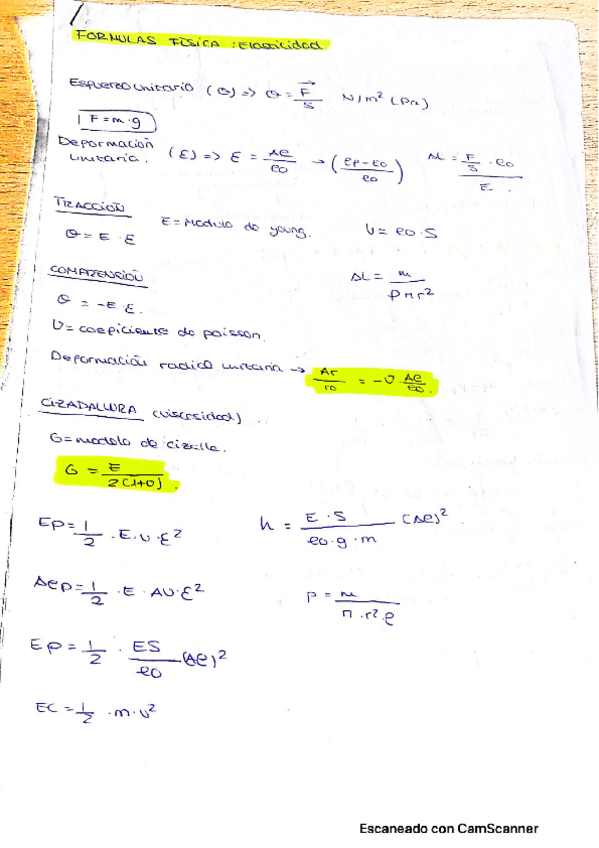 FORMULAS FÍSICA : Elasticidad
Esfuerzo unitario (θ) => θ = F/S N/m² (Pa)
F = m·g
Deformación unitaria. (ε) => ε = Δl/l0 → (lf-l0/l0) ΔL = F/S · l0 / E.
TRACCION
θ = E · ε E = Modulo de young. V = l0·S
COMPRENSION ΔL = m/ρπr²
θ = -E·ε.
υ = coeficiente de poisson.
Deformación radical unitaria → Δr/r0 = -υ·Δl/l0.
CIZADALLURA (viscosidad)
G = modelo de cizalla.
G = E/2(1+υ).
Ep = 1/2 · E·V·ε² h = E·S/l0·g·m (Δl)²
Δep = 1/2 · E · ΔV·ε² ρ = m/π·r²·l
Ep = 1/2 · ES/l0 (Δl)²
EC = 1/2 · m·v²
Escaneado con CamScanner